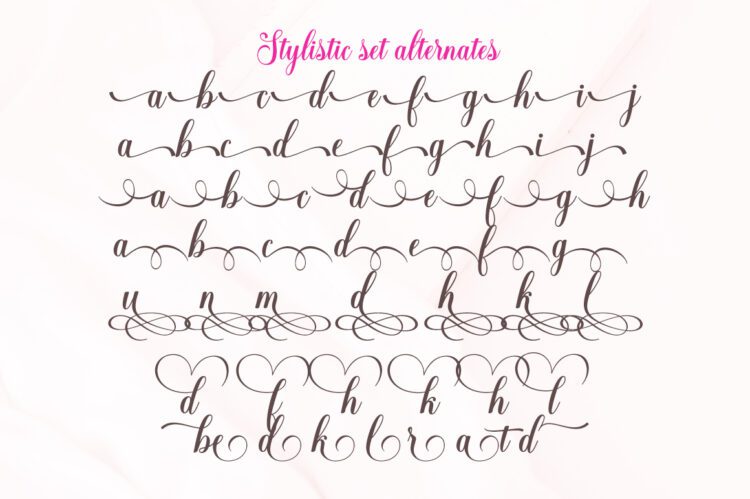 Stylistic set alternates
a b c d e f g h i j
a b c d e f g h i j
a b c d e f g h
a b c d e f g
u n m d h k l
d f h k h l
be d k l r a t d